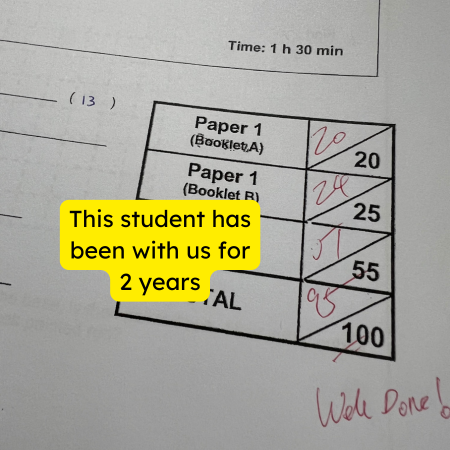 Time: 1 h 30 min
( 13 )
Paper 1
(Booklet A)
20
20
Paper 1
(Booklet B)
24
25
This student has
been with us for
2 years
51
55
TAL
95
100
Well Done!